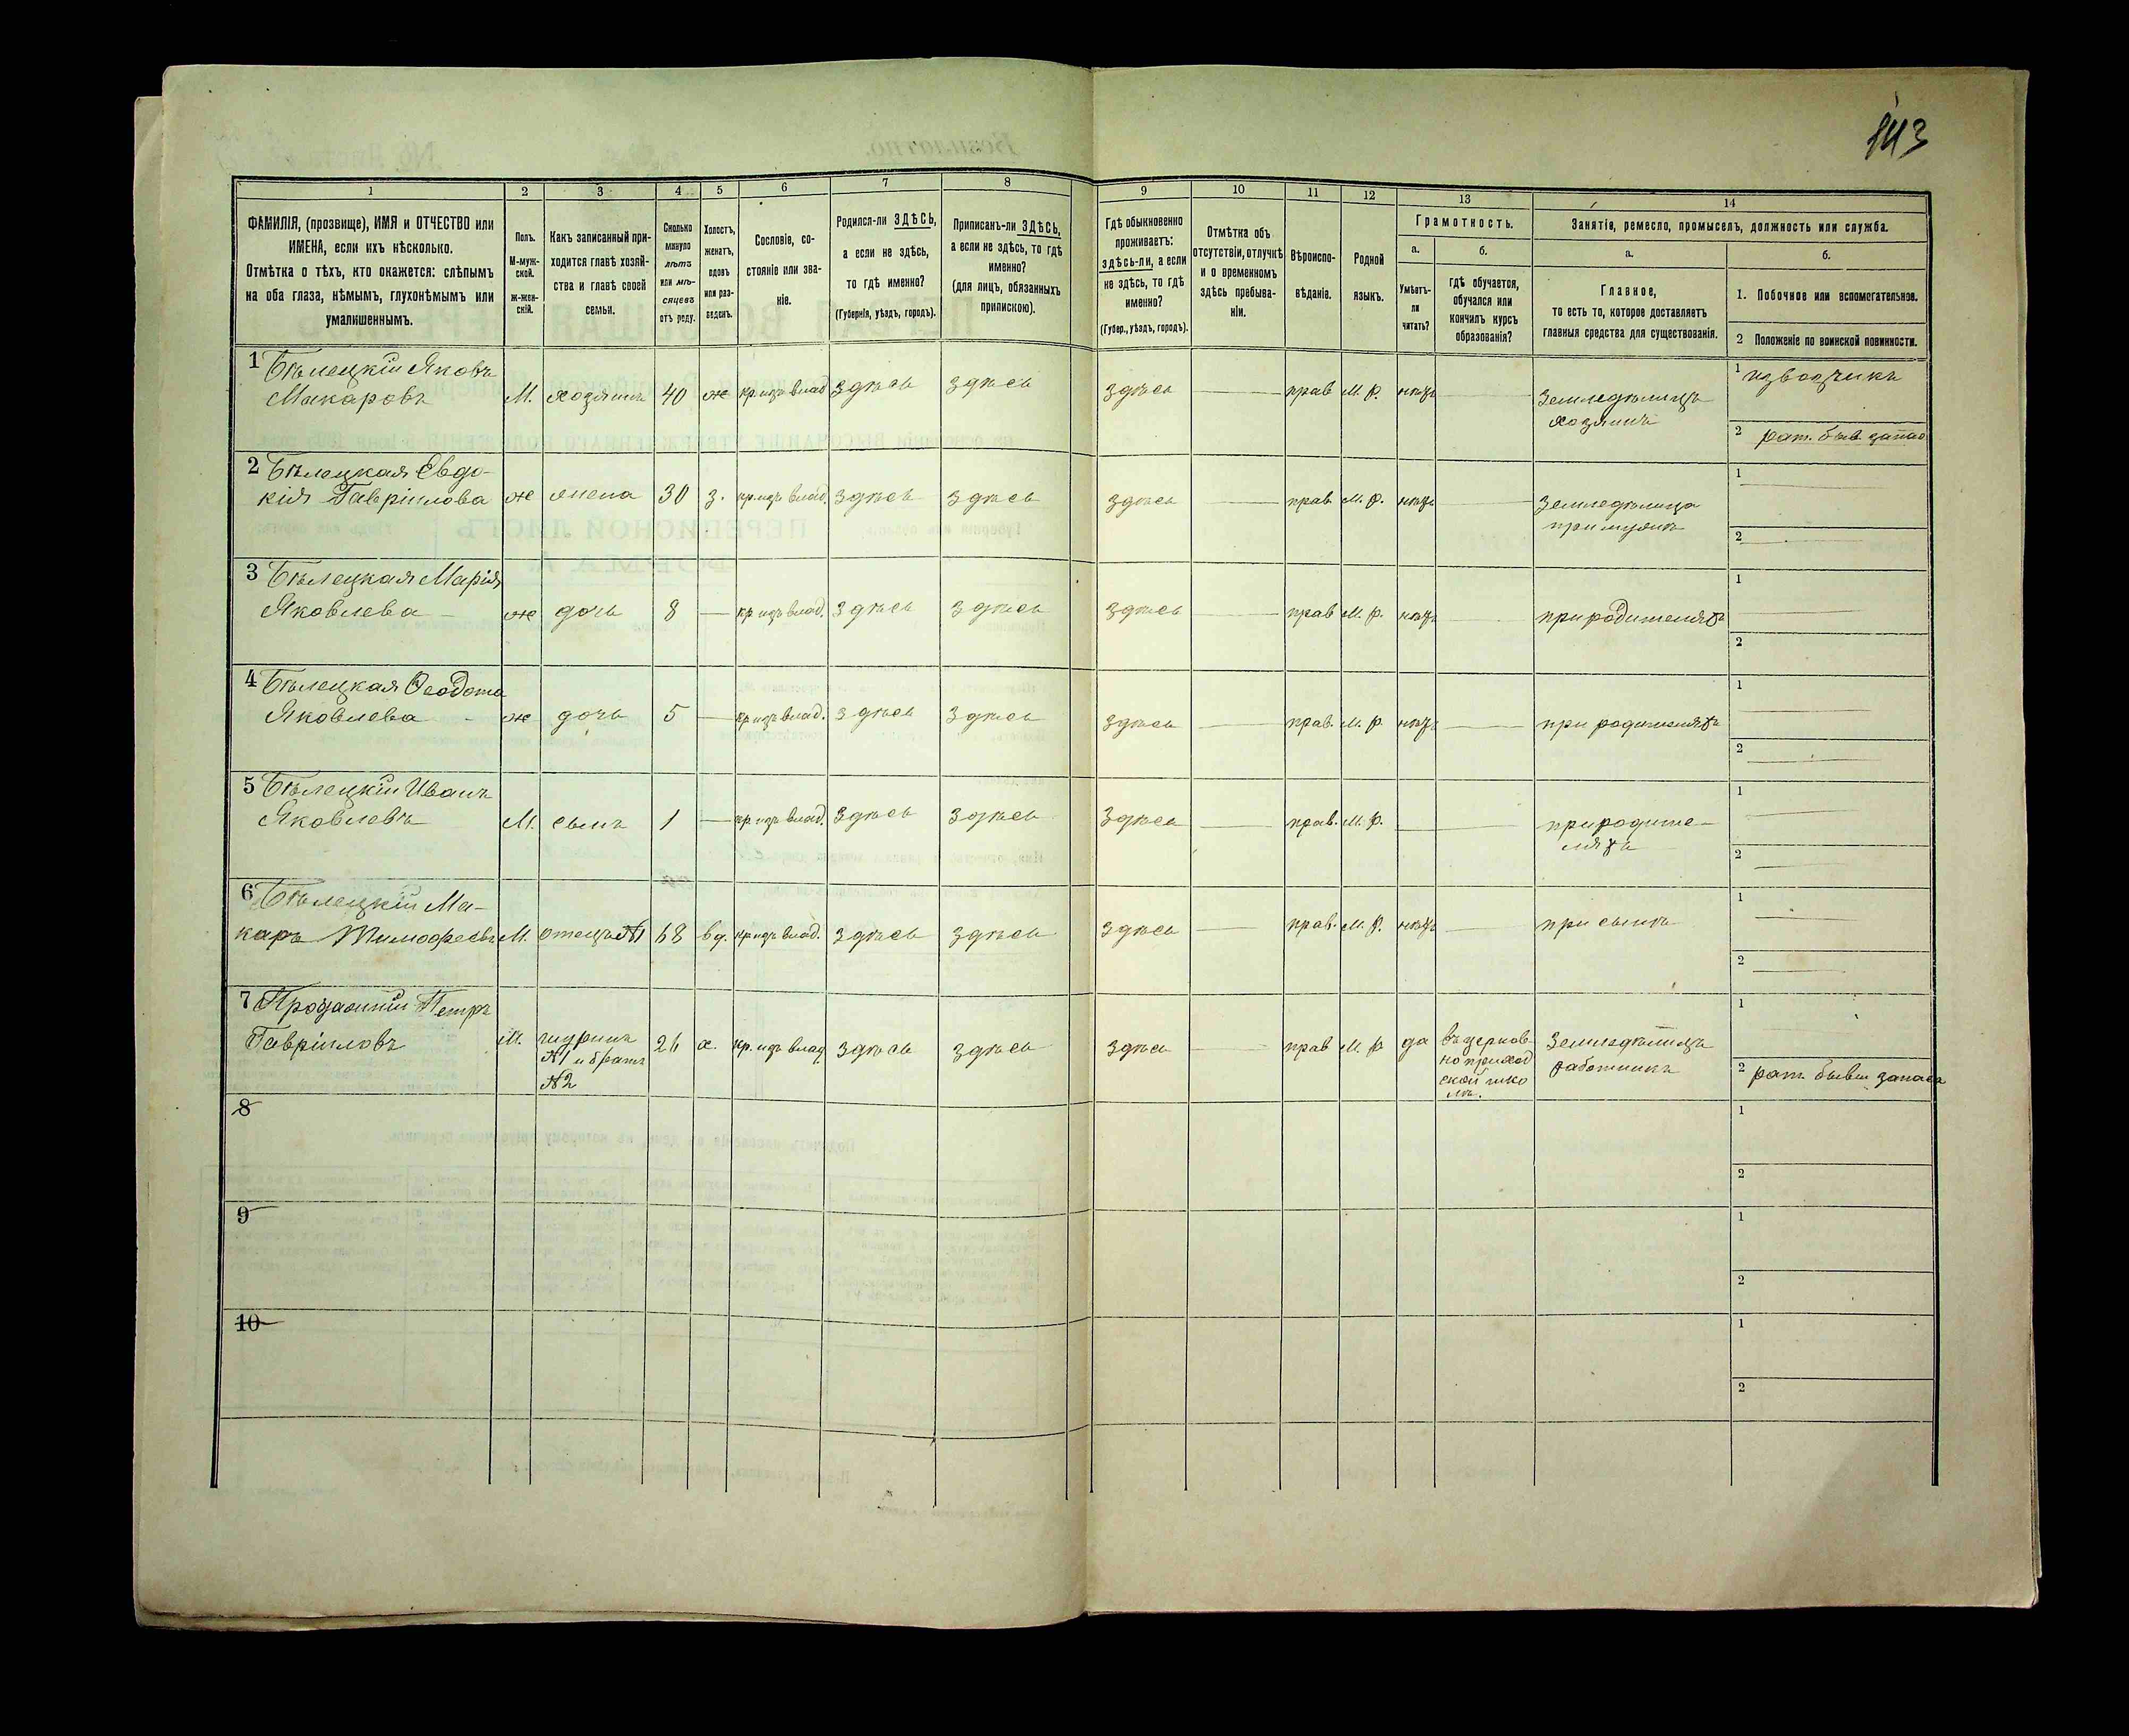 143
1 2 3 4 5 6 7 8 9 10 11 12 13 14
ФАМИЛІЯ, (прозвище), ИМЯ и ОТЧЕСТВО или
ИМЕНА, если ихъ нѣсколько.
Отмѣтка о тѣхъ, кто окажется: слѣпымъ
на оба глаза, нѣмымъ, глухонѣмымъ или
умалишеннымъ.
Полъ.
М-муж-
ской.
ж-жен-
скій.
Какъ записанный при-
ходится главѣ хозяй-
ства и главѣ своей
семьи.
Сколько
минуло
лѣтъ
или мѣ-
сяцевъ
отъ роду.
Холостъ,
женатъ,
вдовъ
или раз-
веденъ.
Сословіе, со-
стояніе или зва-
ніе.
Родился-ли ЗДѢСЬ,
а если не здѣсь,
то гдѣ именно?
(Губернія, уѣздъ, городъ).
Приписанъ-ли ЗДѢСЬ,
а если не здѣсь, то гдѣ
именно?
(для лицъ, обязанныхъ
припискою).
Гдѣ обыкновенно
проживаетъ:
здѣсь-ли, а если
не здѣсь, то гдѣ
именно?
(Губер., уѣздъ, городъ).
Отмѣтка объ
отсутствіи, отлучкѣ
и о временномъ
здѣсь пребыва-
ніи.
Вѣроиспо-
вѣданіе.
Родной
языкъ.
Грамотность.
а.
Умѣетъ-
ли
читать?
б.
Гдѣ обучается,
обучался или
кончилъ курсъ
образованія?
Занятіе, ремесло, промыселъ, должность или служба.
а.
Главное,
то есть то, которое доставляетъ
главныя средства для существованія.
б.
1. Побочное или вспомогательное.
2 Положеніе по воинской повинности.
1 Бѣлецкій Яковъ
Макаровъ
М. хозяинъ 40 ж кр. изъ влад здѣсь здѣсь здѣсь — прав М. Р. нѣтъ —
Земледѣлецъ
хозяинъ
1 извозчикъ
2 рат. быв запас
2 Бѣлецкая Евдо-
кія Гавріилова
ж жена 30 з. кр. изъ влад. здѣсь здѣсь здѣсь — прав. М. Р. нѣтъ —
Земледѣлица
при мужѣ
1 —
2 —
3 Бѣлецкая Марія
Яковлева
ж дочь 8 — кр изъ влад. здѣсь здѣсь здѣсь — прав М. Р. нѣтъ — при родителяхъ
1 —
2
4 Бѣлецкая Ѳеодота
Яковлева
ж дочь 5 — кр изъ влад. здѣсь здѣсь здѣсь — прав. М. Р нѣтъ — при родителяхъ
1 —
2 —
5 Бѣлецкій Иванъ
Яковлевъ
М. сынъ 1 — кр изъ влад. здѣсь здѣсь здѣсь — прав. М. Р. — —
при родите-
ляхъ
1 —
2 —
6 Бѣлецкій Ма-
каръ Тимофеевъ
М. отецъ №1 68 вд. кр изъ влад. здѣсь здѣсь здѣсь — прав. М. Р. нѣтъ — при сынѣ
1 —
2 —
7 Петръ
Гавріиловъ
М. шуринъ
№1 и братъ
№2
26 х. кр. изъ влад. здѣсь здѣсь здѣсь — прав М. Р да
въ церков-
но приход
ской шко
лѣ.
Земледѣлецъ
работникъ
1
2 рат. бывш запаса
8
1
2
9
1
2
10
1
2